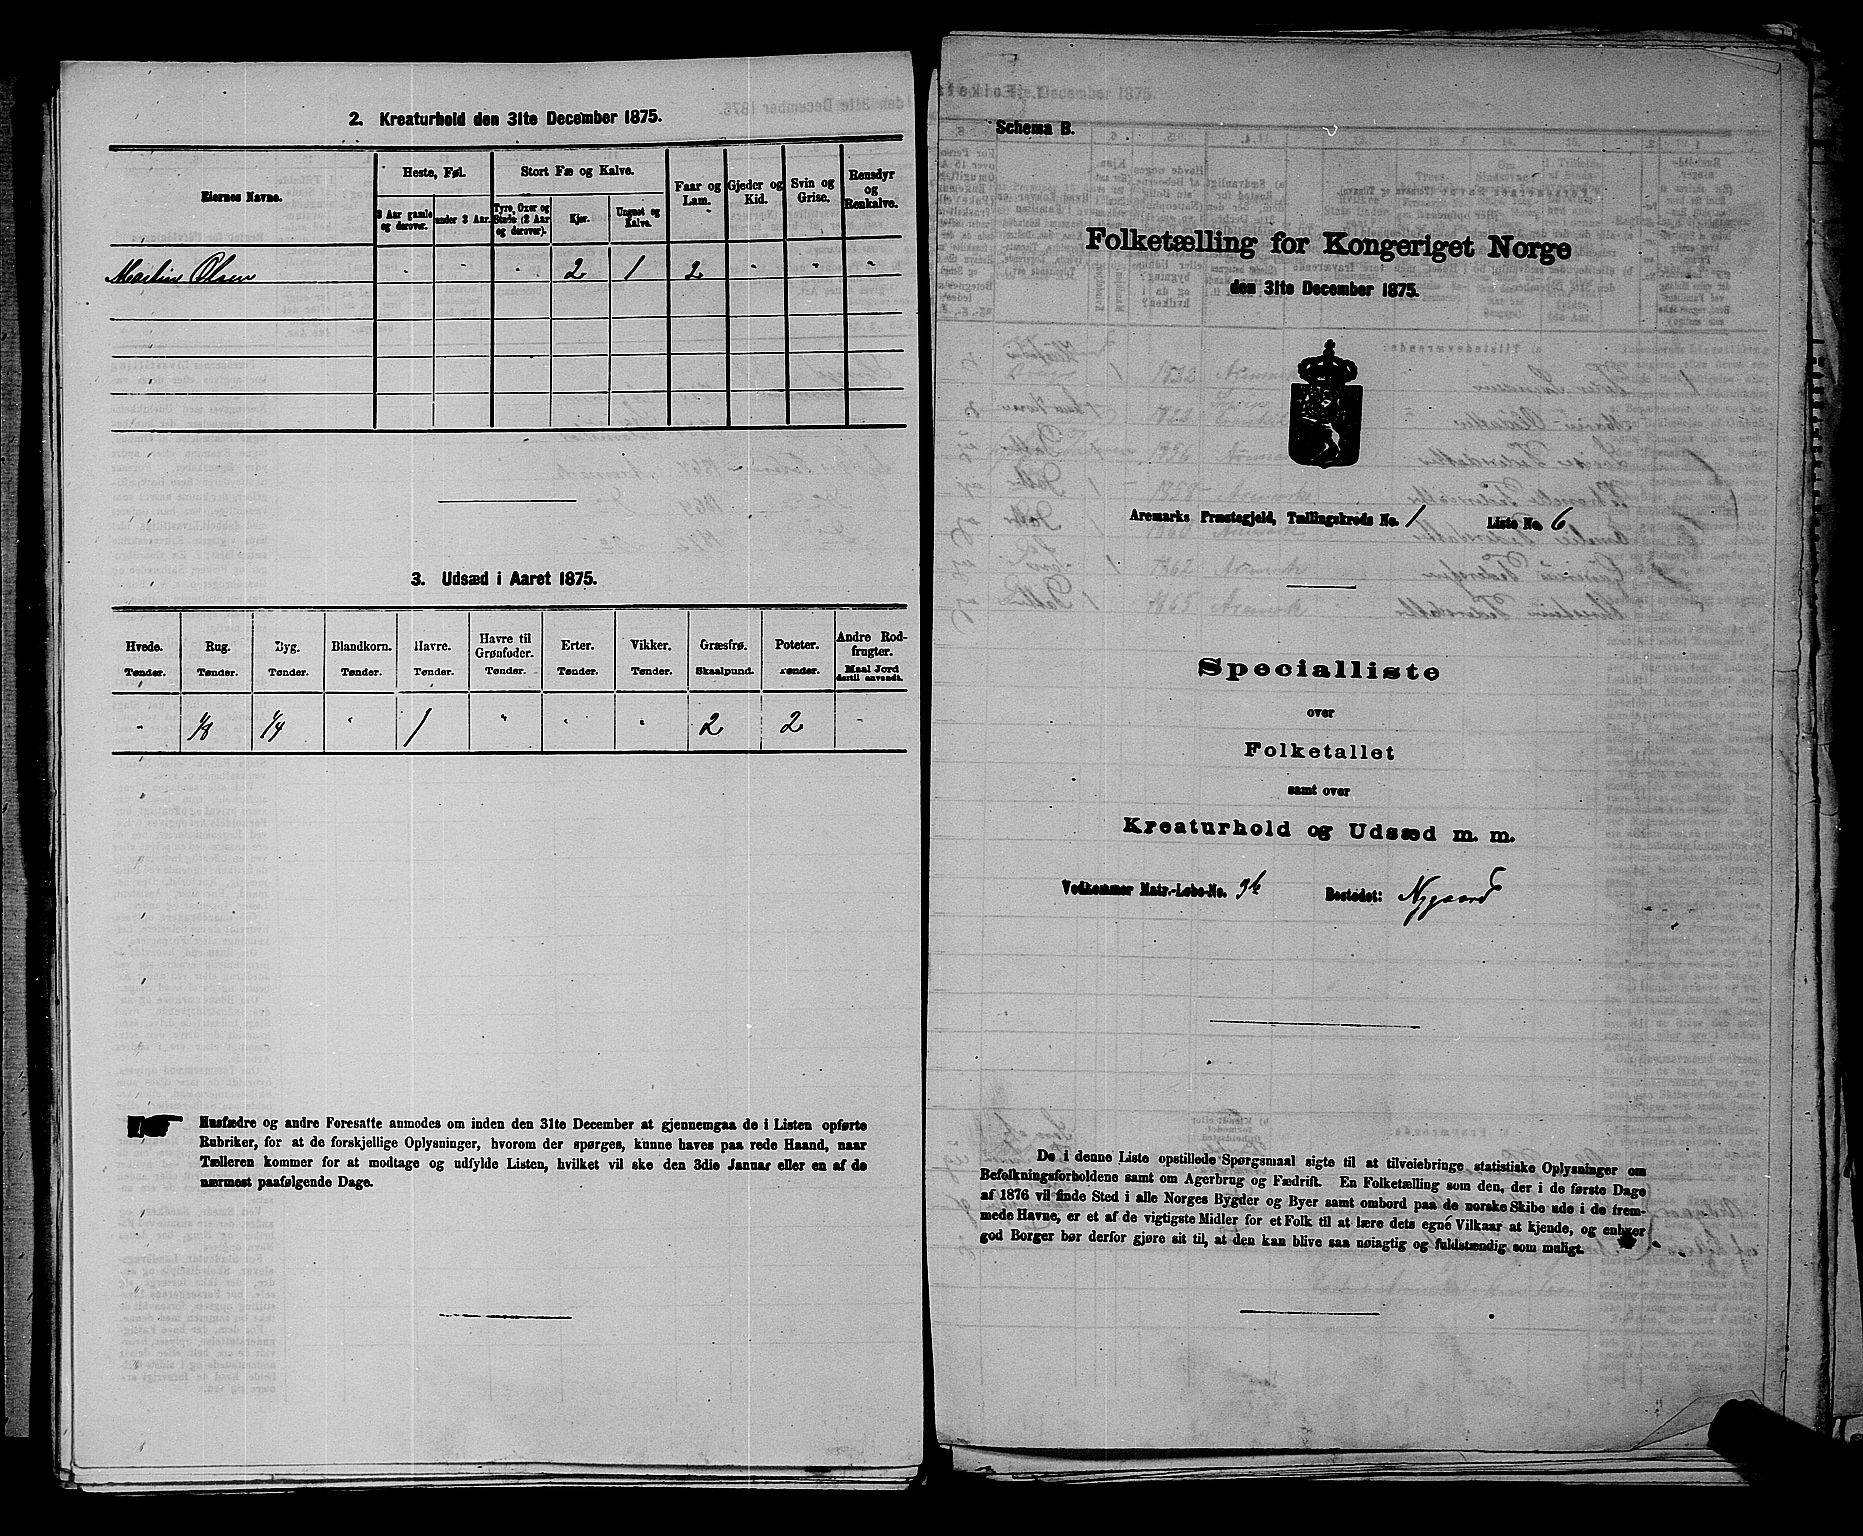 2. Kreaturhold den 31te December 1875.
Eiernes Navne.
Heste, Føl.
3 Aar gamle og derover.
under 3 Aar.
Stort Fæ og Kalve.
Tyre, Oxer og Stude (2 Aar og derover).
Kjør.
Ungnøt og Kalve.
Faar og Lam.
Gjeder og Kid.
Svin og Grise.
Rensdyr og Renkalve.
Martin Olsen " " " 2 1 2 " " "
3. Udsæd i Aaret 1875.
Hvede. Rug. Byg. Blandkorn. Havre. Havre til Grønfoder. Erter. Vikker. Græsfrø. Poteter. Andre Rodfrugter.
Tønder. Tønder. Tønder. Tønder. Tønder. Tønder. Tønder. Tønder. Skaalpund. Tønder. Maal Jord dertil anvendt.
" 1/8 1/4 " 1 " " " 2 2 "
Husfædre og andre Foresatte anmodes om inden den 31te December at gjennemgaa de i Listen opførte
Rubriker, for at de forskjellige Oplysninger, hvorom der spørges, kunne haves paa rede Haand, naar
Tælleren kommer for at modtage og udfylde Listen, hvilket vil ske den 3die Januar eller en af de
nærmest paafølgende Dage.
Schema B.
Folketælling for Kongeriget Norge
den 31te December 1875.
Aremarks Præstegjeld, Tællingskreds No. 1 Liste No. 6
Specialliste
over
Folketallet
samt over
Kreaturhold og Udsæd m. m.
Vedkommer Matr.-Løbe-No. 9b Bostedet: Nygaard
De i denne Liste opstillede Spørgsmaal sigte til at tilveiebringe statistiske Oplysninger om
Befolkningsforholdene samt om Agerbrug og Fædrift. En Folketælling som den, der i de første Dage
af 1876 vil finde Sted i alle Norges Bygder og Byer samt ombord paa de norske Skibe ude i de frem-
mede Havne, er et af de vigtigste Midler for et Folk til at lære dets egne Vilkaar at kjende, og enhver
god Borger bør derfor gjøre sit til, at den kan blive saa nøiagtig og fuldstændig som muligt.